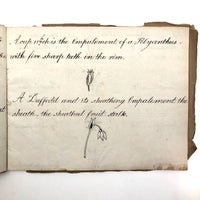 A cup which is the Empalement of a Polyanthus
with five sharp teeth on the rim.
A Daffodil and its sheathing Empalement the
sheath, the sheathed fruit stalk.